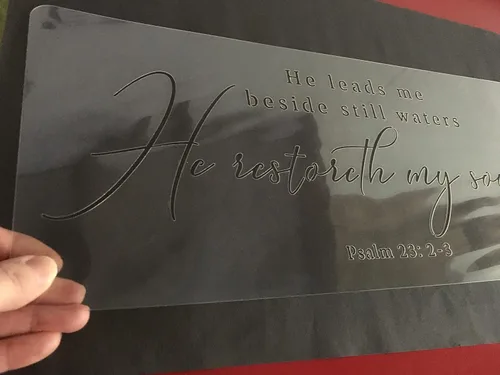 He leads me
beside still waters
He restoreth my sou
Psalm 23: 2-3